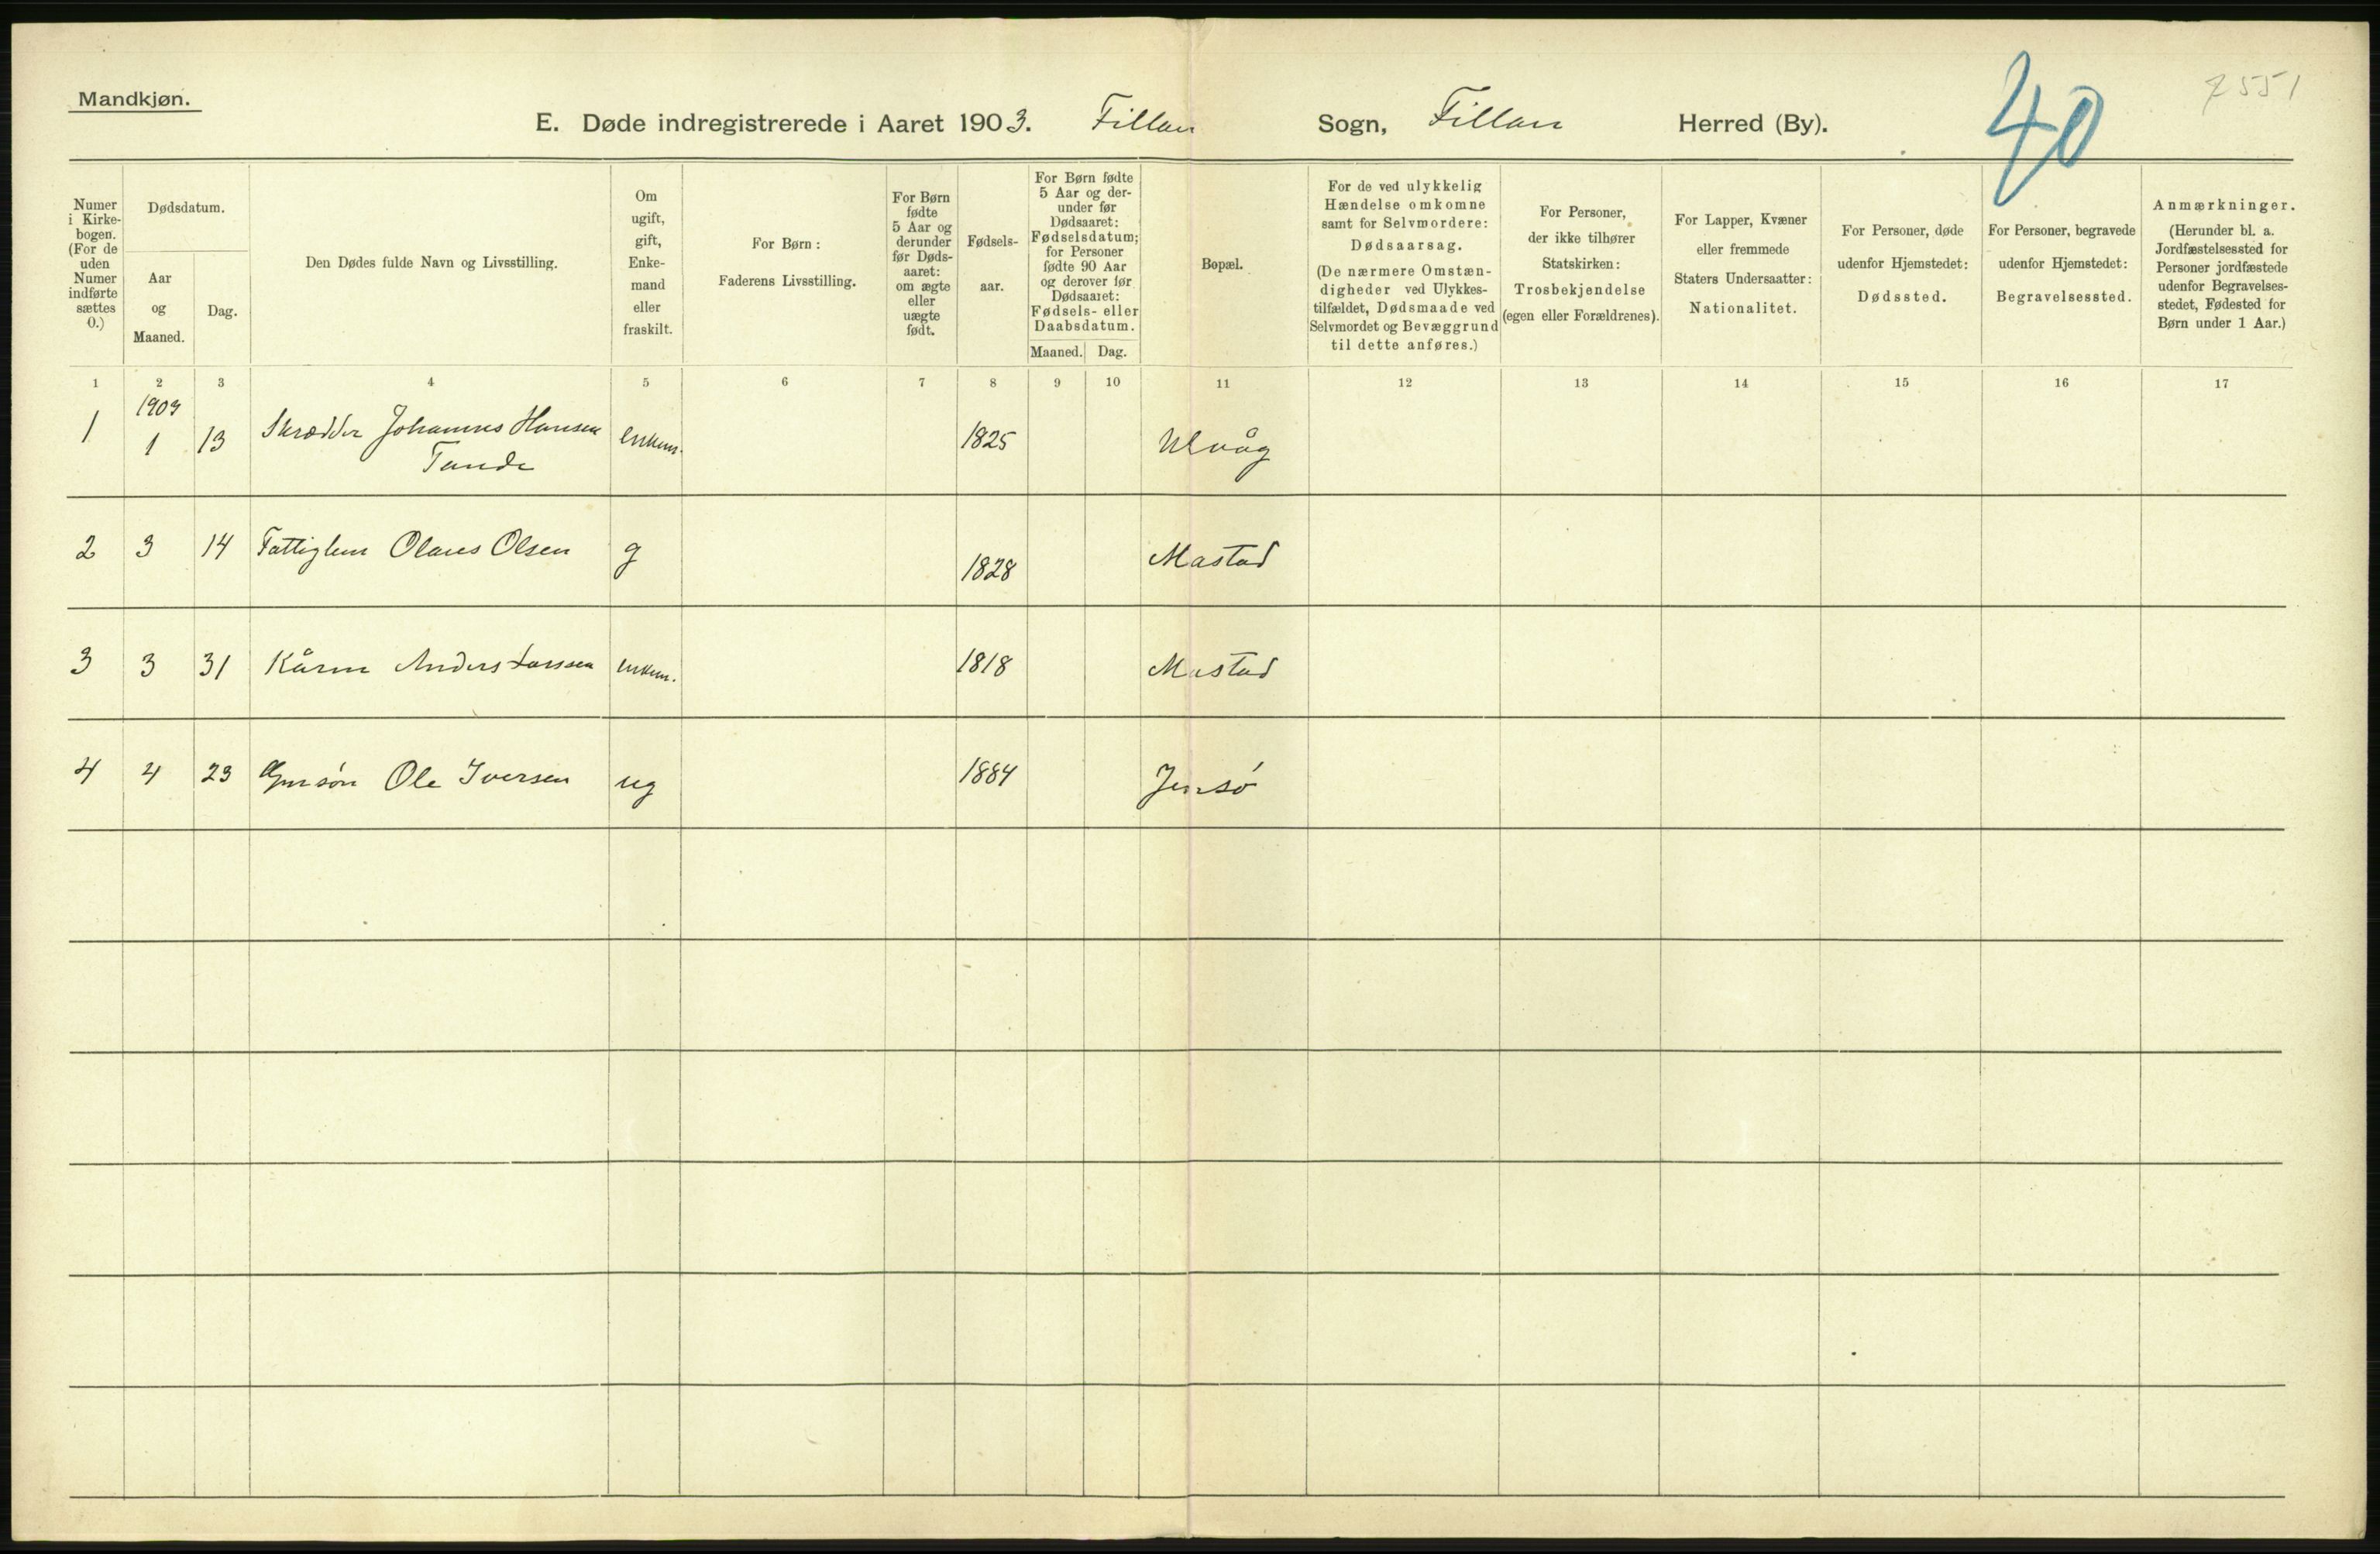 Mandkjøn.
E. Døde indregistrerede i Aaret 1903. Fillan Sogn, Fillan Herred (By).
40
7551
Numer i Kirkebogen. (For de uden Numer indførte sættes 0.)
Dødsdatum.
Aar og Maaned.
Dag.
Den Dødes fulde Navn og Livsstilling.
Om ugift, gift, Enkemand eller fraskilt.
For Børn: Faderens Livsstilling.
For Børn fødte 5 Aar og derunder før Dødsaaret: om ægte eller uægte født.
Fødselsaar.
For Børn fødte 5 Aar og derunder før Dødsaaret: Fødselsdatum; for Personer fødte 90 Aar og derover før Dødsaaret: Fødsels- eller Daabsdatum.
Maaned. Dag.
Bopæl.
For de ved ulykkelig Hændelse omkomne samt for Selvmordere: Dødsaarsag. (De nærmere Omstændigheder ved Ulykkestilfældet, Dødsmaade ved Selvmordet og Bevæggrund til dette anføres.)
For Personer, der ikke tilhører Statskirken: Trosbekjendelse (egen eller Forældrenes).
For Lapper, Kvæner eller fremmede Staters Undersaatter: Nationalitet.
For Personer, døde udenfor Hjemstedet: Dødssted.
For Personer, begravede udenfor Hjemstedet: Begravelsessted.
Anmærkninger. (Herunder bl. a. Jordfæstelsessted for Personer jordfæstede udenfor Begravelsesstedet, Fødested for Børn under 1 Aar.)
1 2 3 4 5 6 7 8 9 10 11 12 13 14 15 16 17
1903
1 1 13 Skrædder Johannes Hansen enkem. 1825 Ulvåg
Tande
2 3 14 Fattiglem Olaus Olsen g 1828 Mastad
3 3 31 Kårm Anders Larssen enkem. 1818 Mastad
4 4 23 Gmsøn Ole Iversen ug 1884 Jensø